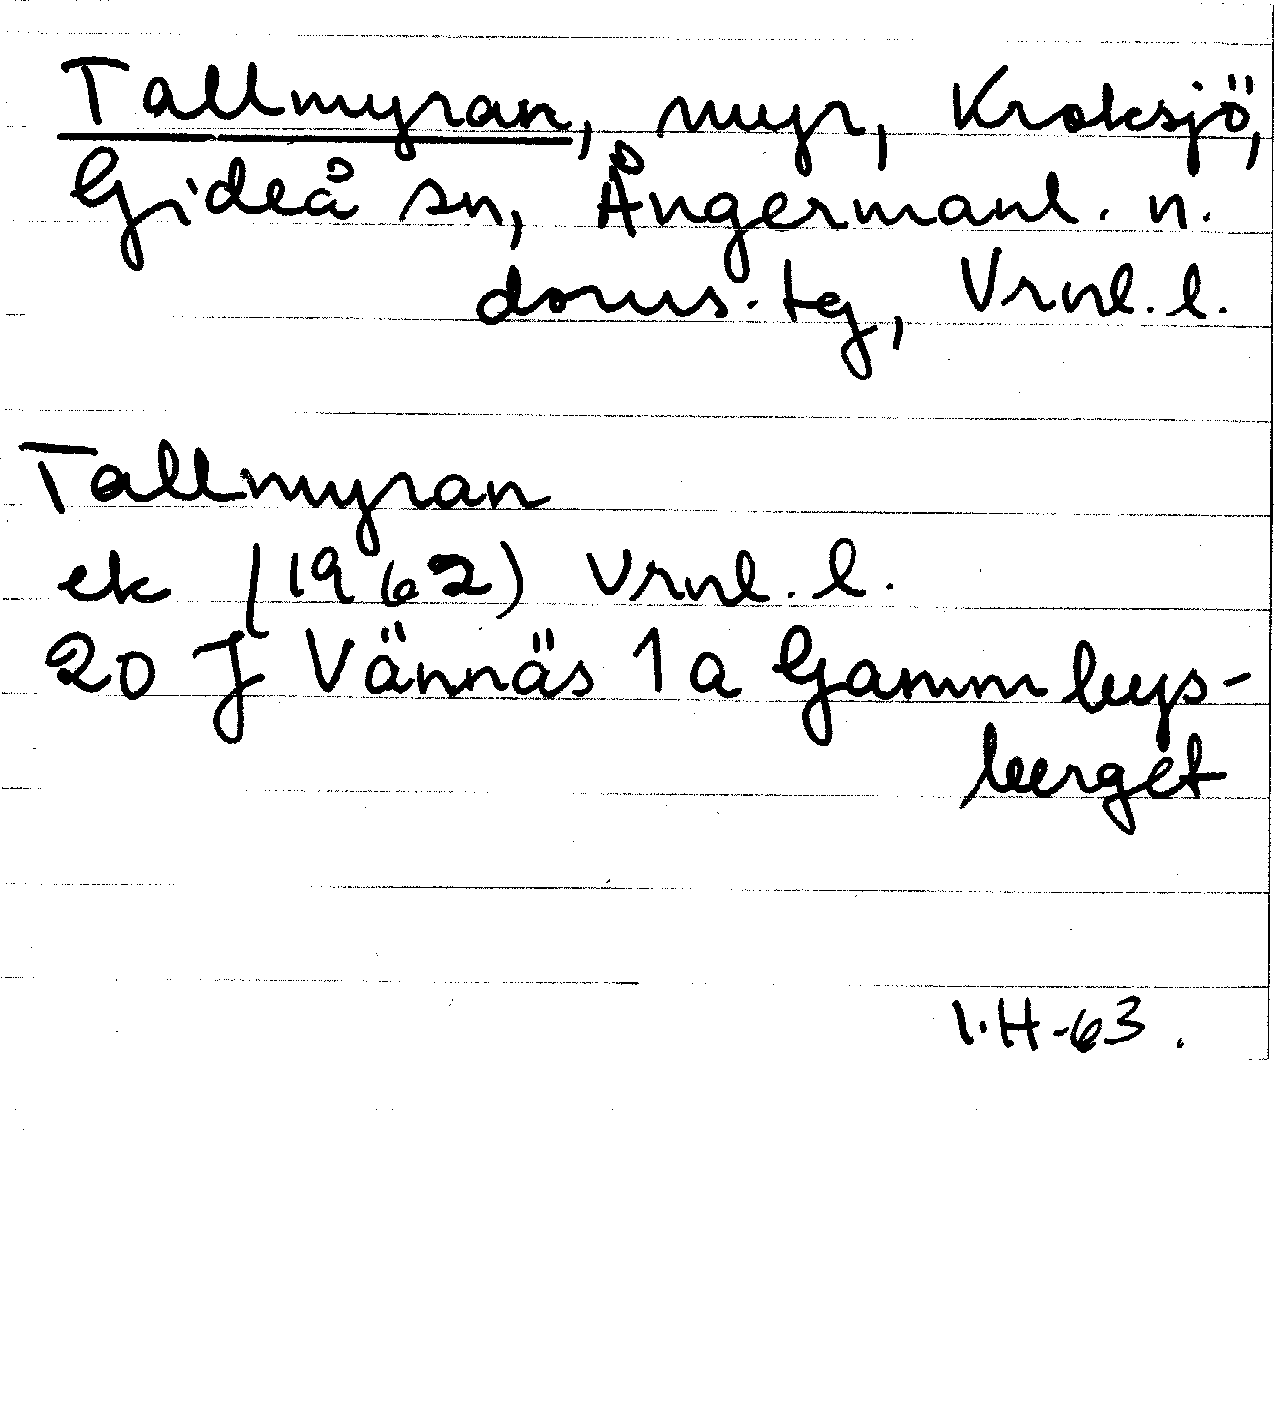 Tallmyran, myr, Kroksjö,
Gideå sn, Ångermanl. n.
doms. tg, Vrnl. l.
Tallmyran
ek (1962) Vrnl. l.
20 J Vännäs 1a Gammbyns-
berget
I.H-63.